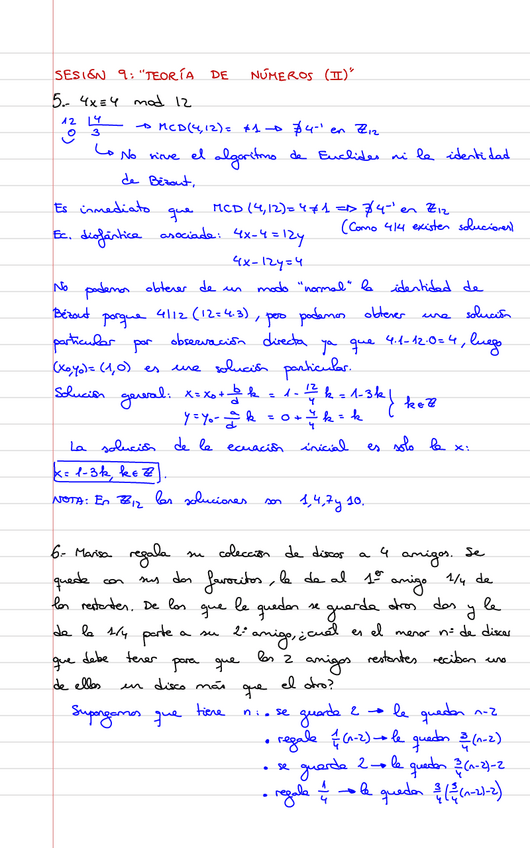 SESIÓN 9: "TEORÍA DE NÚMEROS (II)"
5.- 4x≡4 mod 12
12 |4
0 3 → MCD(4,12)= ≠1 → ∄4⁻¹ en ℤ₁₂
↳ No sirve el algoritmo de Euclides ni la identidad
de Bézout.
Es inmediato que MCD(4,12)=4≠1 => ∄4⁻¹ en ℤ₁₂
Ec. diofántica asociada: 4x-4=12y (Como 4|4 existen soluciones)
4x-12y=4
No podemos obtener de un modo "normal" la identidad de
Bézout porque 4|12 (12=4·3), pero podemos obtener una solución
particular por observación directa ya que 4·1-12·0=4, luego
(x₀,y₀)=(1,0) es una solución particular.
Solución general: x=x₀+b/d k = 1-12/4 k = 1-3k
y=y₀-a/d k = 0+4/4 k = k } k∈ℤ
La solución de la ecuación inicial es sólo la x:
x=1-3k, k∈ℤ.
NOTA: En ℤ₁₂ las soluciones son 1,4,7 y 10.
6.- Marisa regala su colección de discos a 4 amigos. Se
queda con sus dos favoritos, le da al 1er amigo 1/4 de
los restantes. De los que le quedan se guarda otros dos y le
da la 1/4 parte a su 2º amigo, ¿cuál es el menor nº de discos
que debe tener para que los 2 amigos restantes reciban uno
de ellos un disco más que el otro?
Supongamos que tiene n: • se guarda 2 → le quedan n-2
• regala 1/4(n-2) → le quedan 3/4(n-2)
• se guarda 2 → le quedan 3/4(n-2)-2
• regala 1/4 → le quedan 3/4(3/4(n-2)-2)